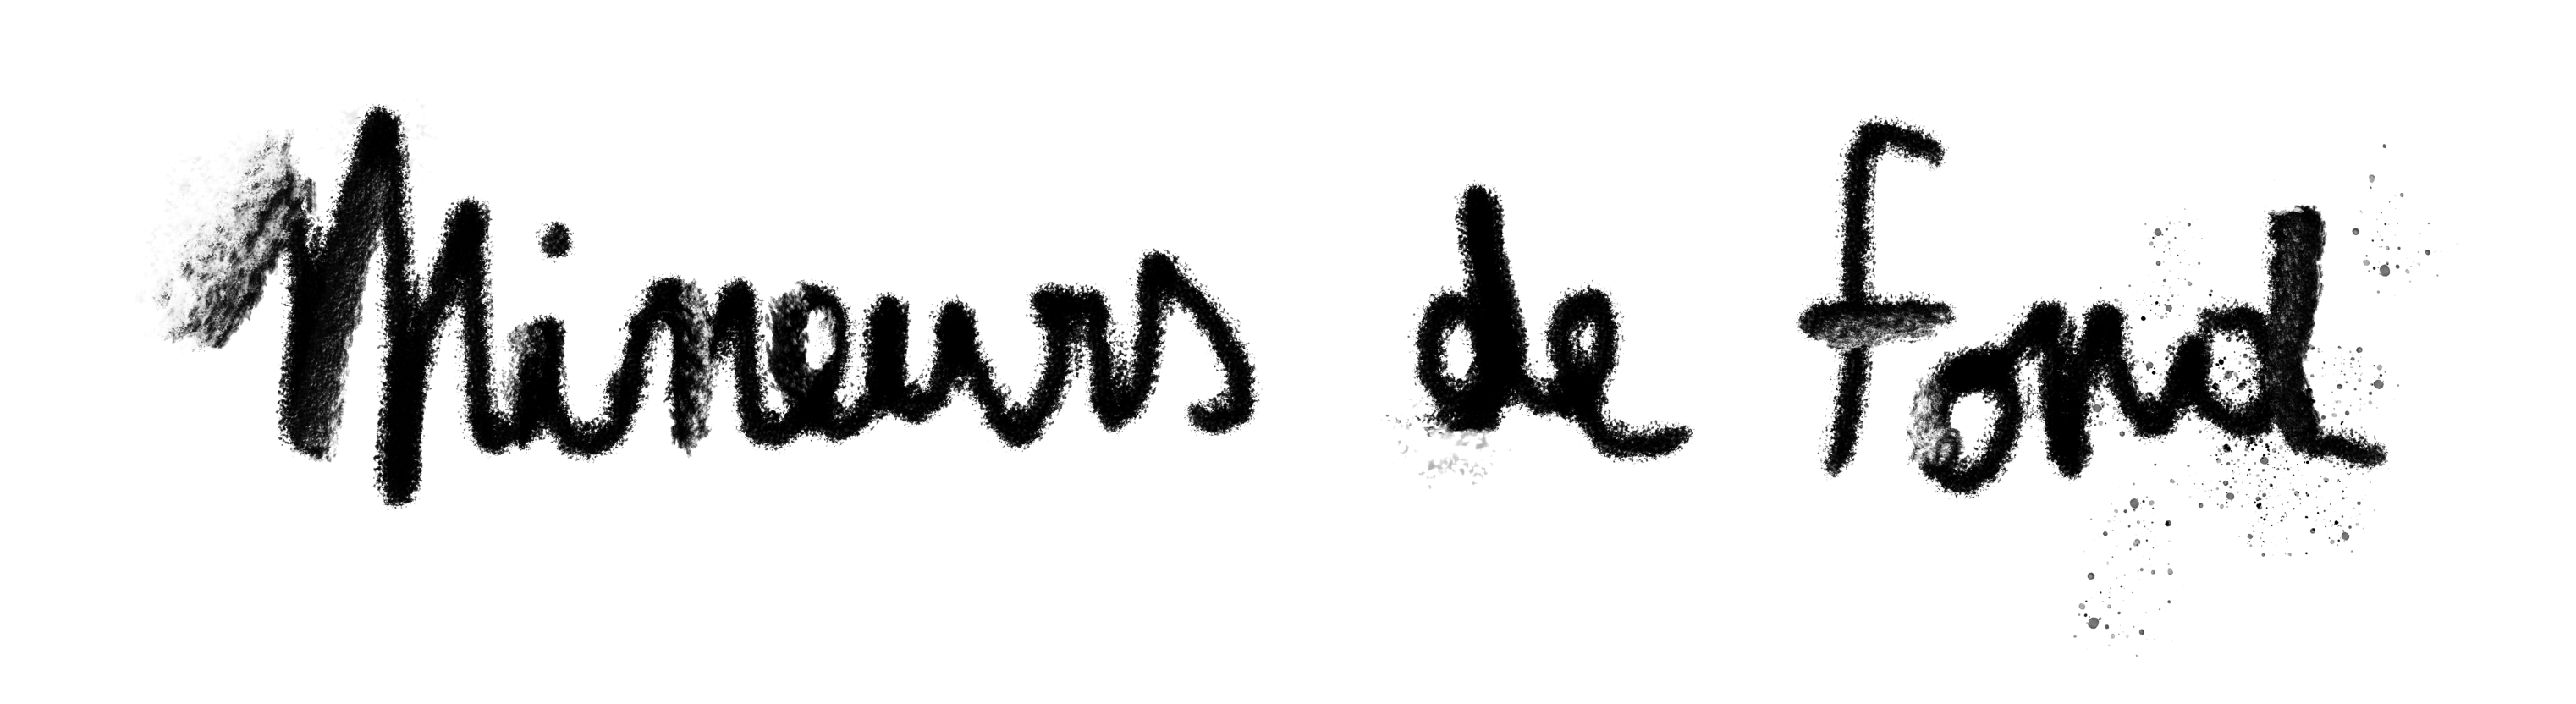 Mineurs de fond